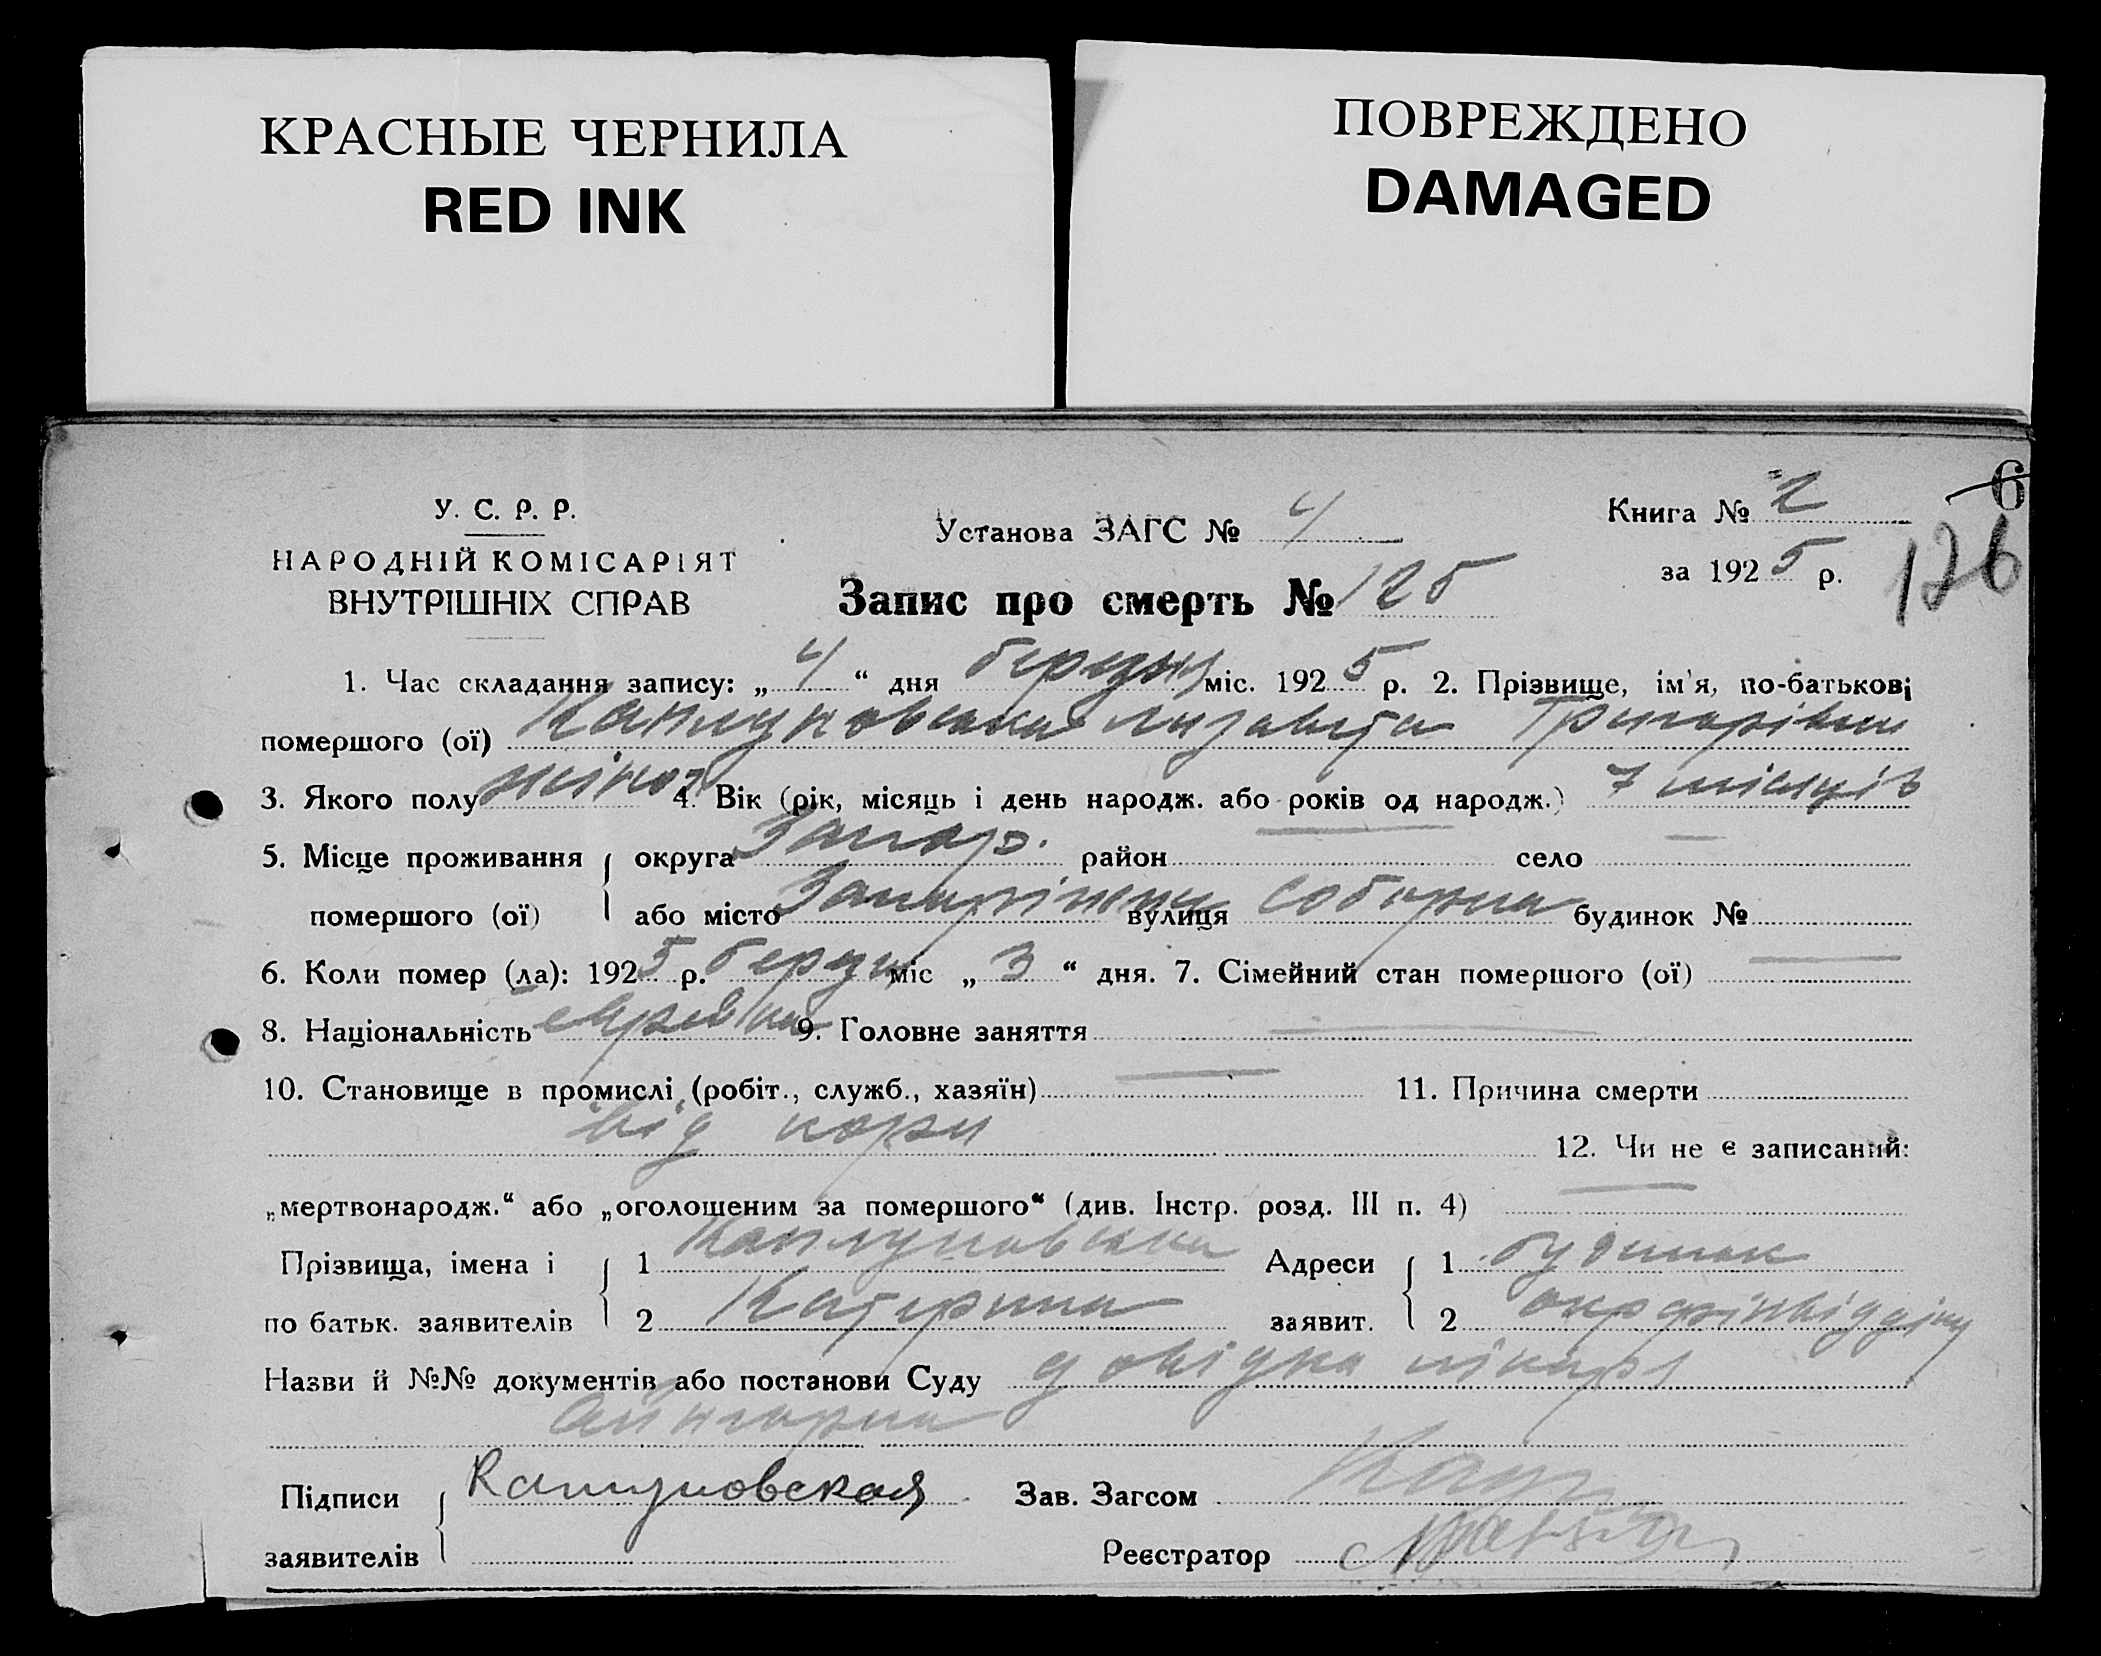 КРАСНЫЕ ЧЕРНИЛА
RED INK
ПОВРЕЖДЕНО
DAMAGED
6
У. С. Р. Р.
НАРОДНІЙ КОМІСАРІЯТ
ВНУТРІШНІХ СПРАВ
Установа ЗАГС № 4
Книга № 2
за 1925 р.
126
Запис про смерть № 125
1. Час складання запису: „4“ дня березня міс. 1925 р. 2. Прізвище, ім'я, по-батькові
помершого (ої) Каплуновська Лизавета Григорівна
3. Якого полу жіноч 4. Вік (рік, місяць і день народж. або років од народж.) 7 місяців
5. Місце проживання округа Запор. район — село —
помершого (ої) або місто Запоріжжя вулиця Соборна будинок №
6. Коли помер (ла): 1925 р. березня міс „3“ дня. 7. Сімейний стан помершого (ої) —
8. Національність еврейка 9. Головне заняття —
10. Становище в промислі (робіт., служб., хазяїн) — 11. Причина смерти
від кори 12. Чи не є записаний:
„мертвонародж.“ або „оголошеним за помершого“ (див. Інстр. розд. III п. 4) —
Прізвища, імена і 1 Каплуновська Адреси 1 будинок
по батьк. заявителів 2 Катерина заявит. 2 окрфінвідділу
Назви й №№ документів або постанови Суду довідка лікаря
Підписи Каплуновская Зав. Загсом
заявителів Реєстратор